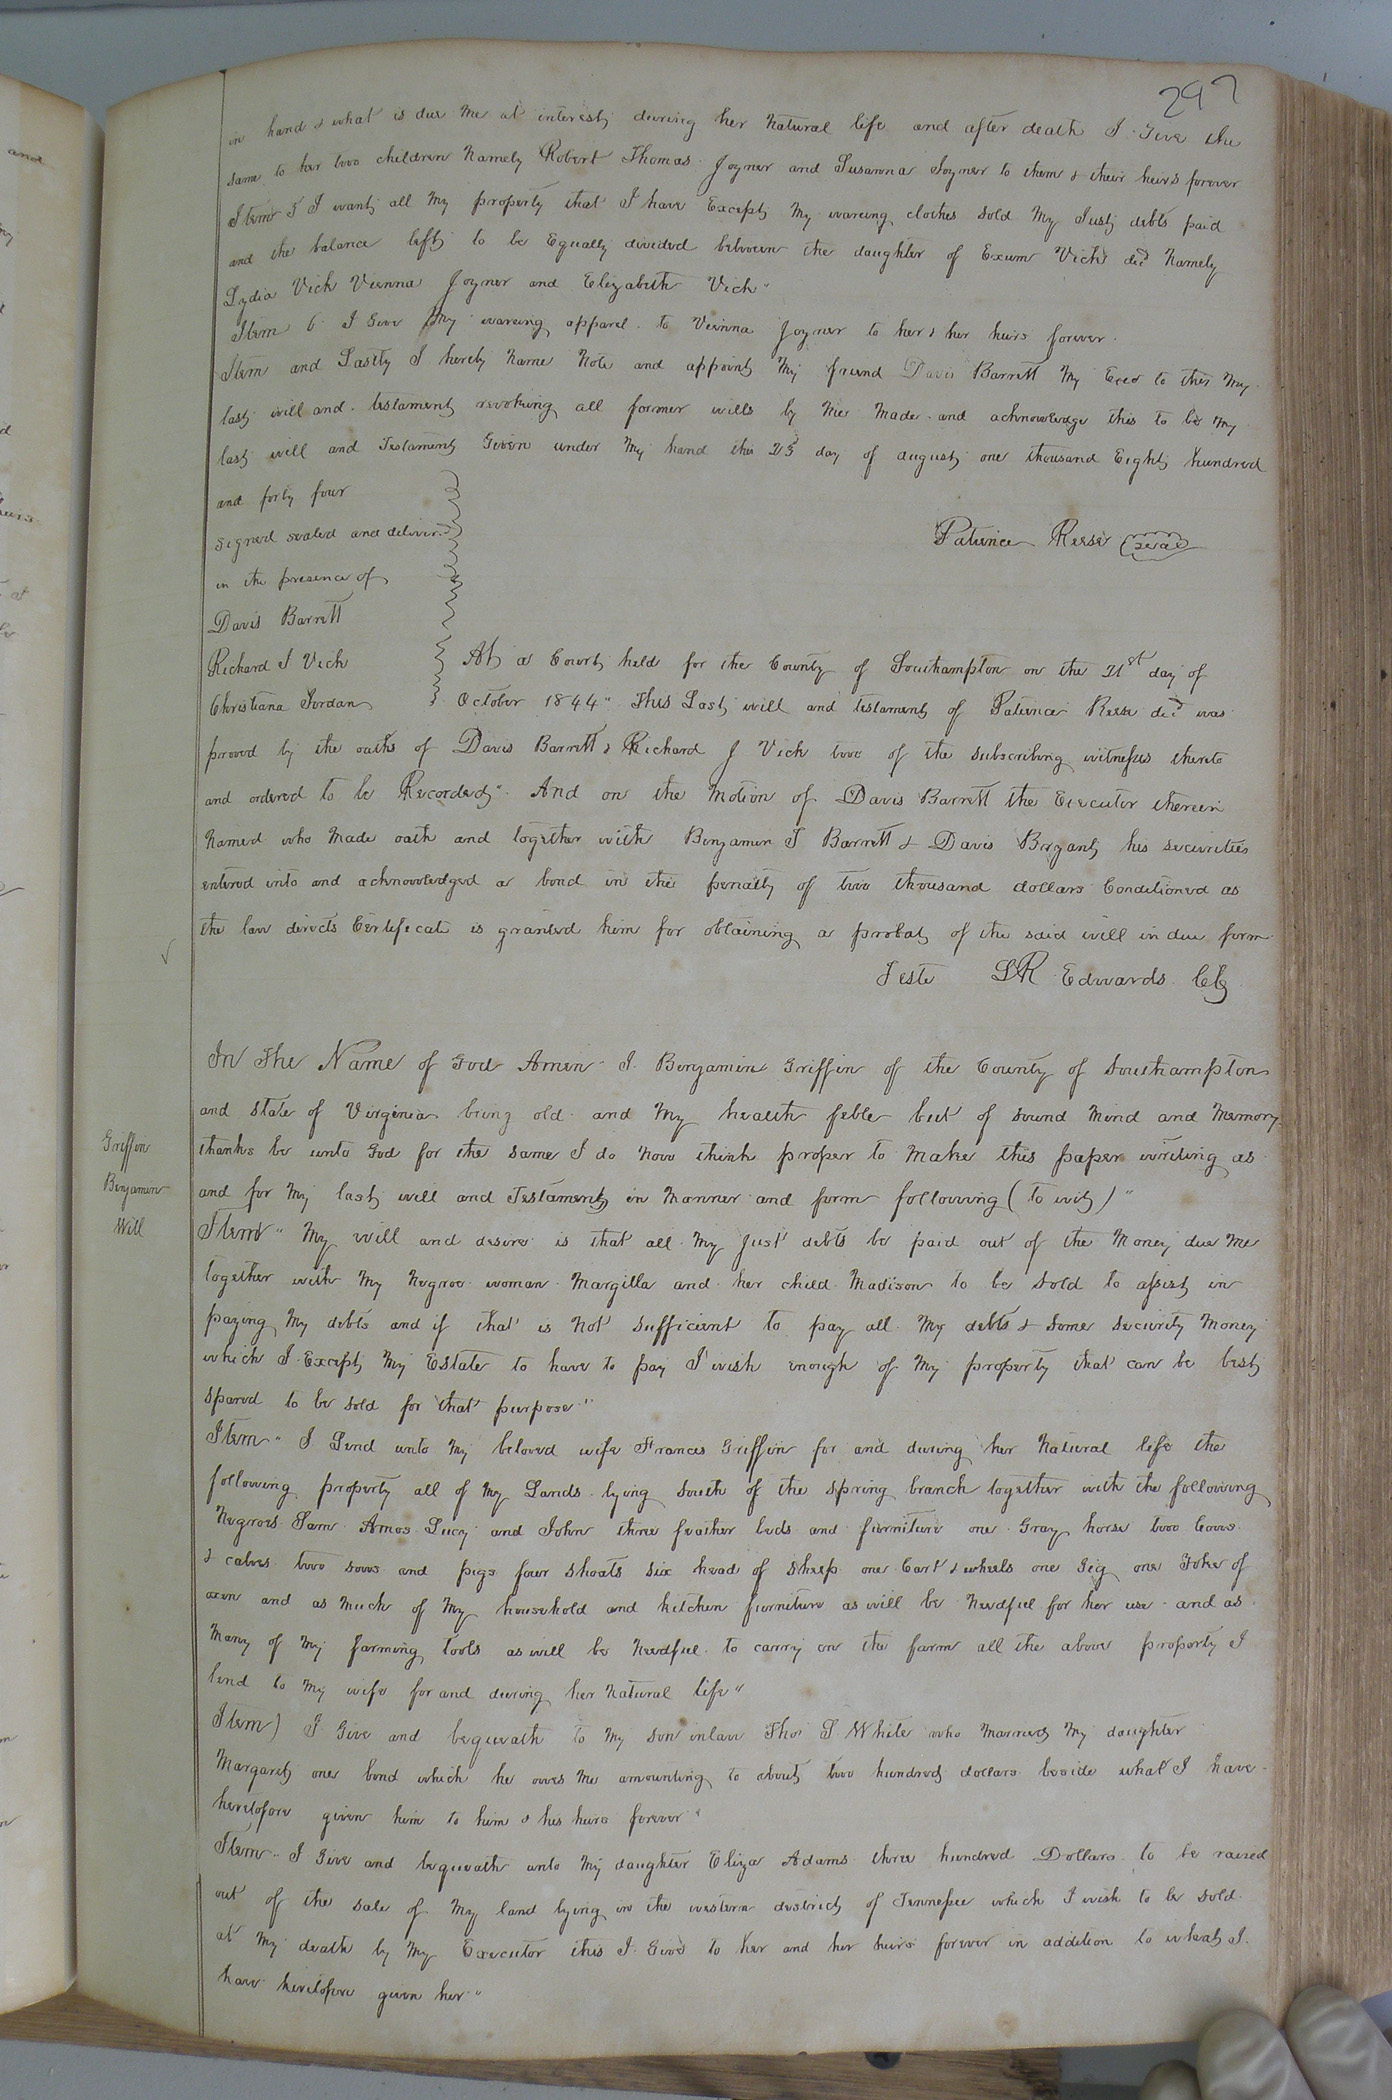 297
in hand & what is due me at interest during her Natural life and after death I Give the
same to her two children Namely Robert Thomas Joyner and Susanna Joyner to them & their heirs forever
Item 5 I want all My property that I have Except My wareing clothes Sold My Just debts paid
and the balance left to be Equally divided between the daughter of Exum Vick decd Namely
Lydia Vick Vienna Joyner and Elizabeth Vick"
Item 6 I Give My wareing apparel to Vienna Joyner to her & her heirs forever
Item and Lastly I hereby Name Note and appoint My friend Davis Barrett My Exec to this My
last will and testament revokeing all former wills by Me Made and acknowledge this to be My
last will and Testament Given under My hand this 23 day of august one thousand Eight hundred
and forty four
signed sealed and deliverd
in the presence of
Patience Reese (seal)
Davis Barrett
Richard J Vick
Christiana Jordan
At a Court held for the County of Southampton on the 21st day of
October 1844" This Last will and testament of Patience Reese decd was
proved by the oaths of Davis Barrett & Richard J Vick two of the subscribing witnesses thereto
and ordered to be Recorded" And on the Motion of Davis Barrett the Executor therein
Named who Made oath and together with Benjamin J Barrett & Davis Bryant his securities
entered into and acknowledged a bond in the penalty of two thousand dollars Conditioned as
the law directs Certificate is granted him for obtaining a probat of the said will in due form
Teste LR Edwards Clk
Griffin
Benjamin
Will
In The Name of God Amen I Benjamin Griffin of the County of Southampton
and State of Virginia being old and My health feble but of sound Mind and Memory
thanks be unto God for the same I do Now think proper to Make this paper writing as
and for My last will and Testament in Manner and form following (to wit)"
Item" My will and desire is that all My just debts be paid out of the Money due Me
together with My Negroe woman Margilla and her child Madison to be Sold to assist in
paying My debts and if that is Not sufficient to pay all My debts & some security Money
which I Except My Estate to have to pay I wish enough of My property that can be best
spared to be sold for that purpose"
Item" I Lend unto My beloved wife Frances Griffin for and during her Natural life the
following property all of My Lands lying South of the spring branch together with the following
Negroes Sam Amos Lucy and John three feather beds and furniture one Gray horse two Cows
& calves two sows and pigs four shoats six head of sheep one Cart & wheels one Gig one Yoke of
oxen and as Much of My household and kitchen furniture as will be Needful for her use and as
Many of My farming tools as will be Needful to carry on the farm all the above property I
lend to My wife for and during her Natural life"
Item) I Give and bequeath to My son inlaw Thos L White who Married My daughter
Margaret one bond which he owes Me amounting to about two hundred dollars beside what I have
heretofore given him to him & his heirs forever"
Item" I Give and bequeath unto My daughter Eliza Adams three hundred Dollars to be raised
out of the sale of My land lying in the western district of Tennessee which I wish to be sold
at My death by My Executor this I Give to her and her heirs forever in addition to what I
have heretofore given her"